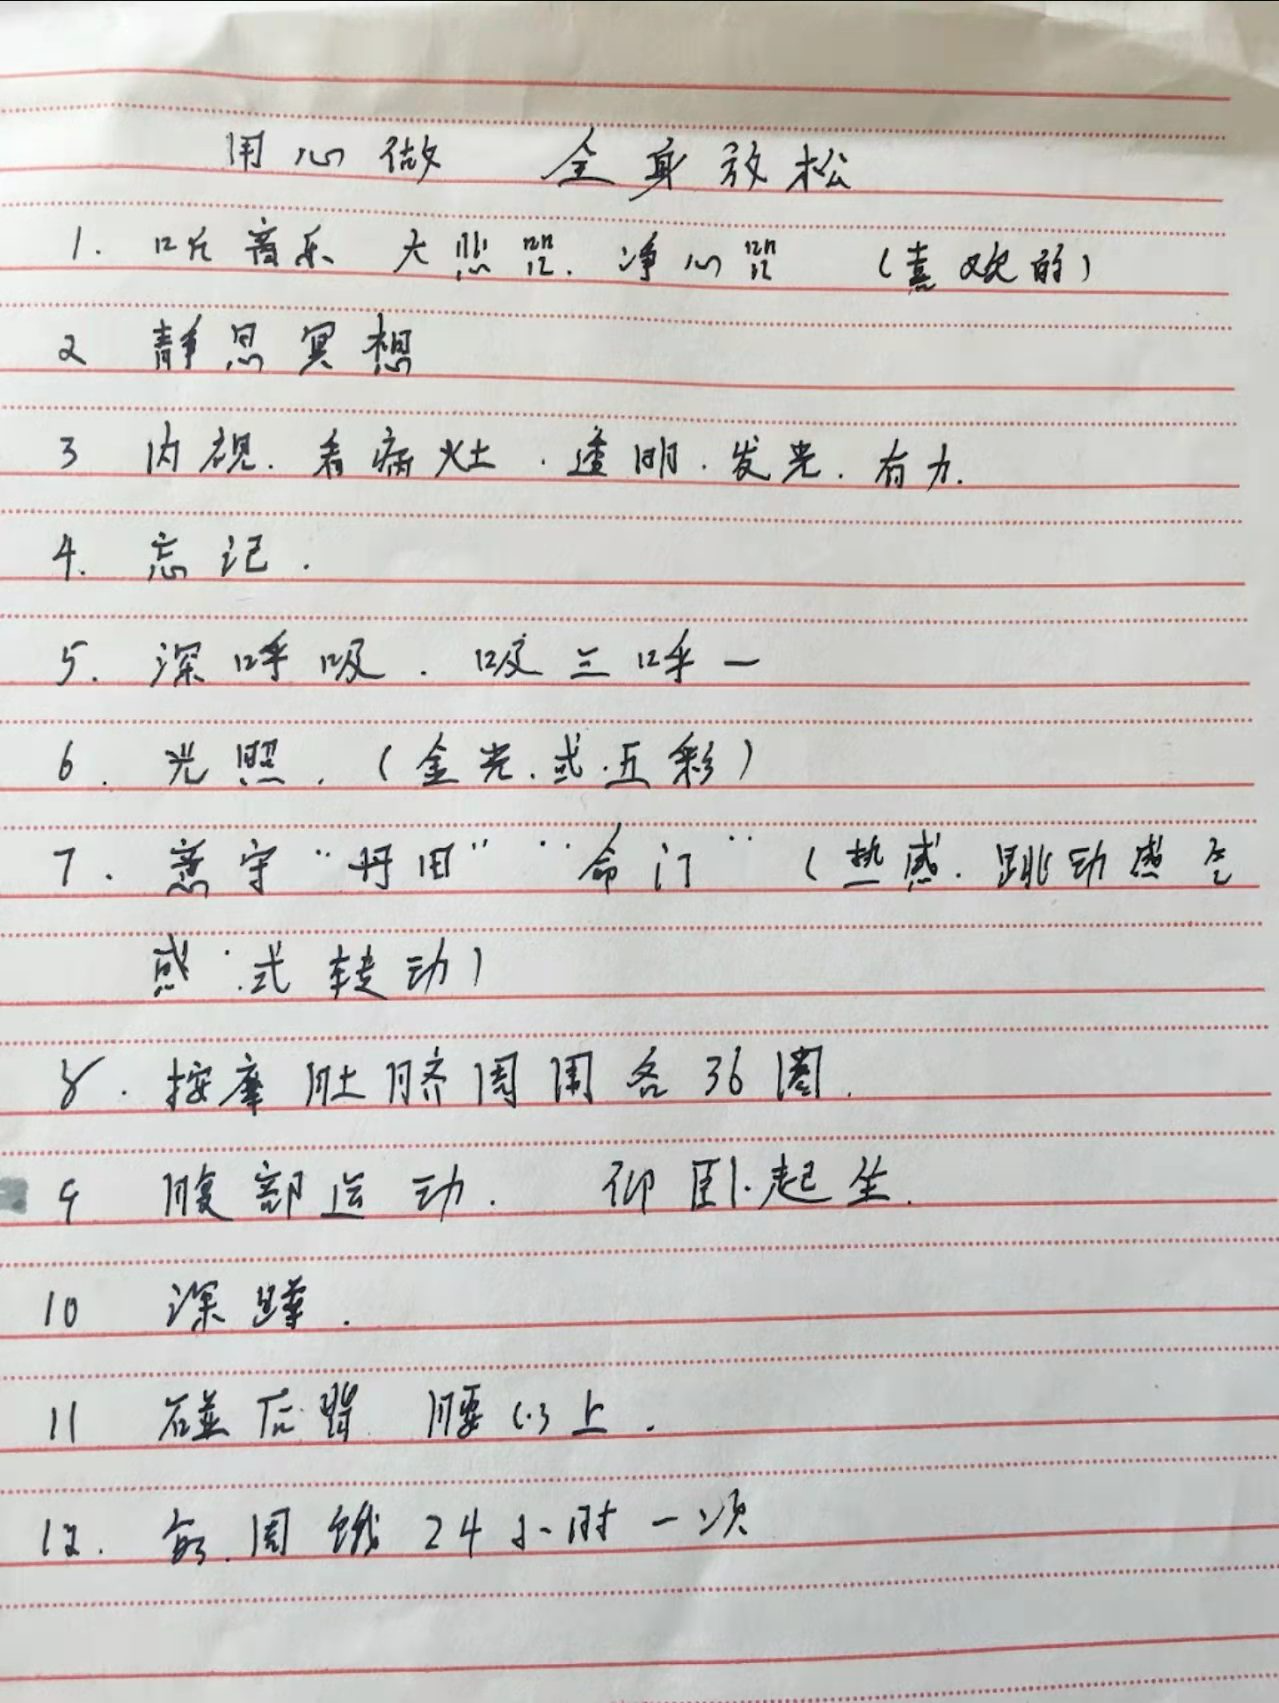 用心做 全身放松
1. 听音乐 大悲咒. 净心咒 (喜欢的)
2 静思冥想
3 内视. 看病灶. 透明. 发光. 有力.
4. 忘记.
5. 深呼吸. 吸三呼一
6. 光照. (金光.或.五彩)
7. 意守“丹田”“命门”(热感. 跳动感
感.或转动)
8. 按摩肚脐周围各36圈.
9 腹部运动. 仰卧.起坐.
10 深蹲.
11 碰后背 腰以上.
12. 每周饿24小时一次